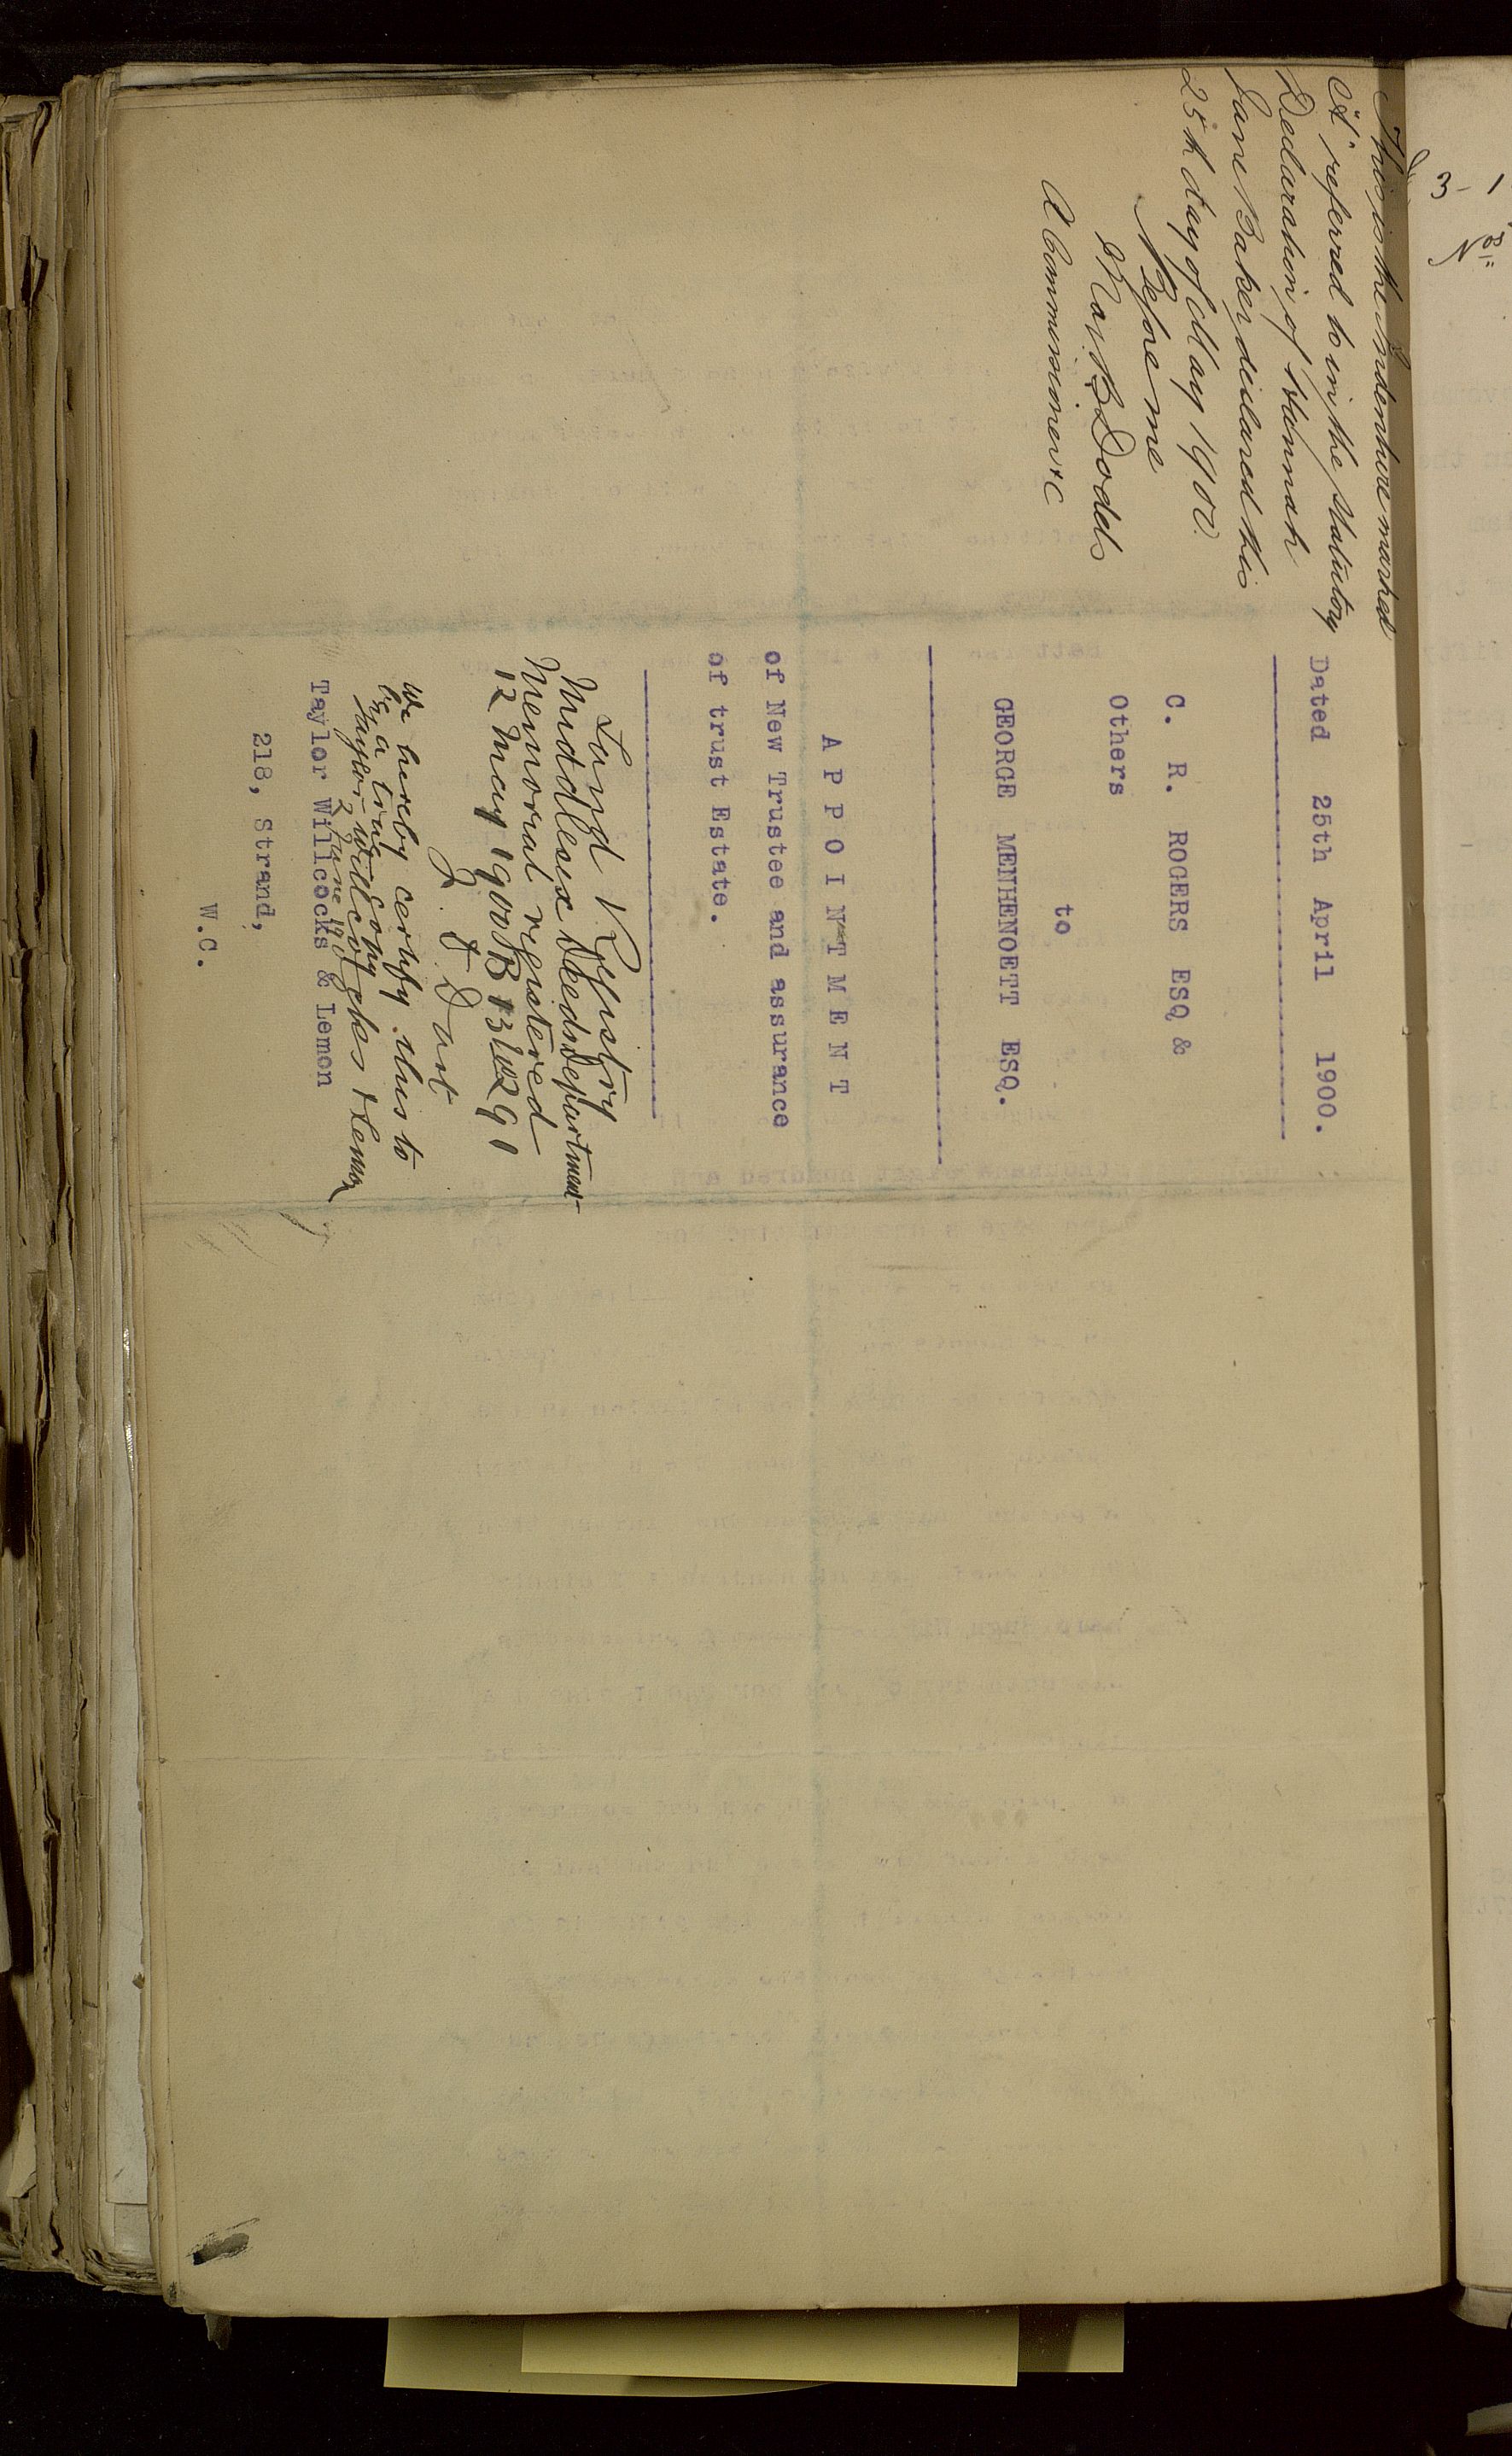 This is the Indenture marked
"A" referred to in the Statutory
Declaration of Hannah
Jane Baker declared this
25th day of May 1900.
Before me
B Dodds
A Commissioner &c
Dated 25th April 1900.
C. R. ROGERS ESQ &
Others
to
GEORGE MENHENOETT ESQ.
A P P O I N T M E N T
of New Trustee and assurance
of trust Estate.
Land Registry
Middlesex Deeds Department
Memorial registered
12 May 1900 B 13
J. J. Dart
We hereby certify this to
be a true copy
Taylor Willcocks & Lemon
2 June
Taylor Willcocks & Lemon
218, Strand,
W.C.
3 - 1
Nº